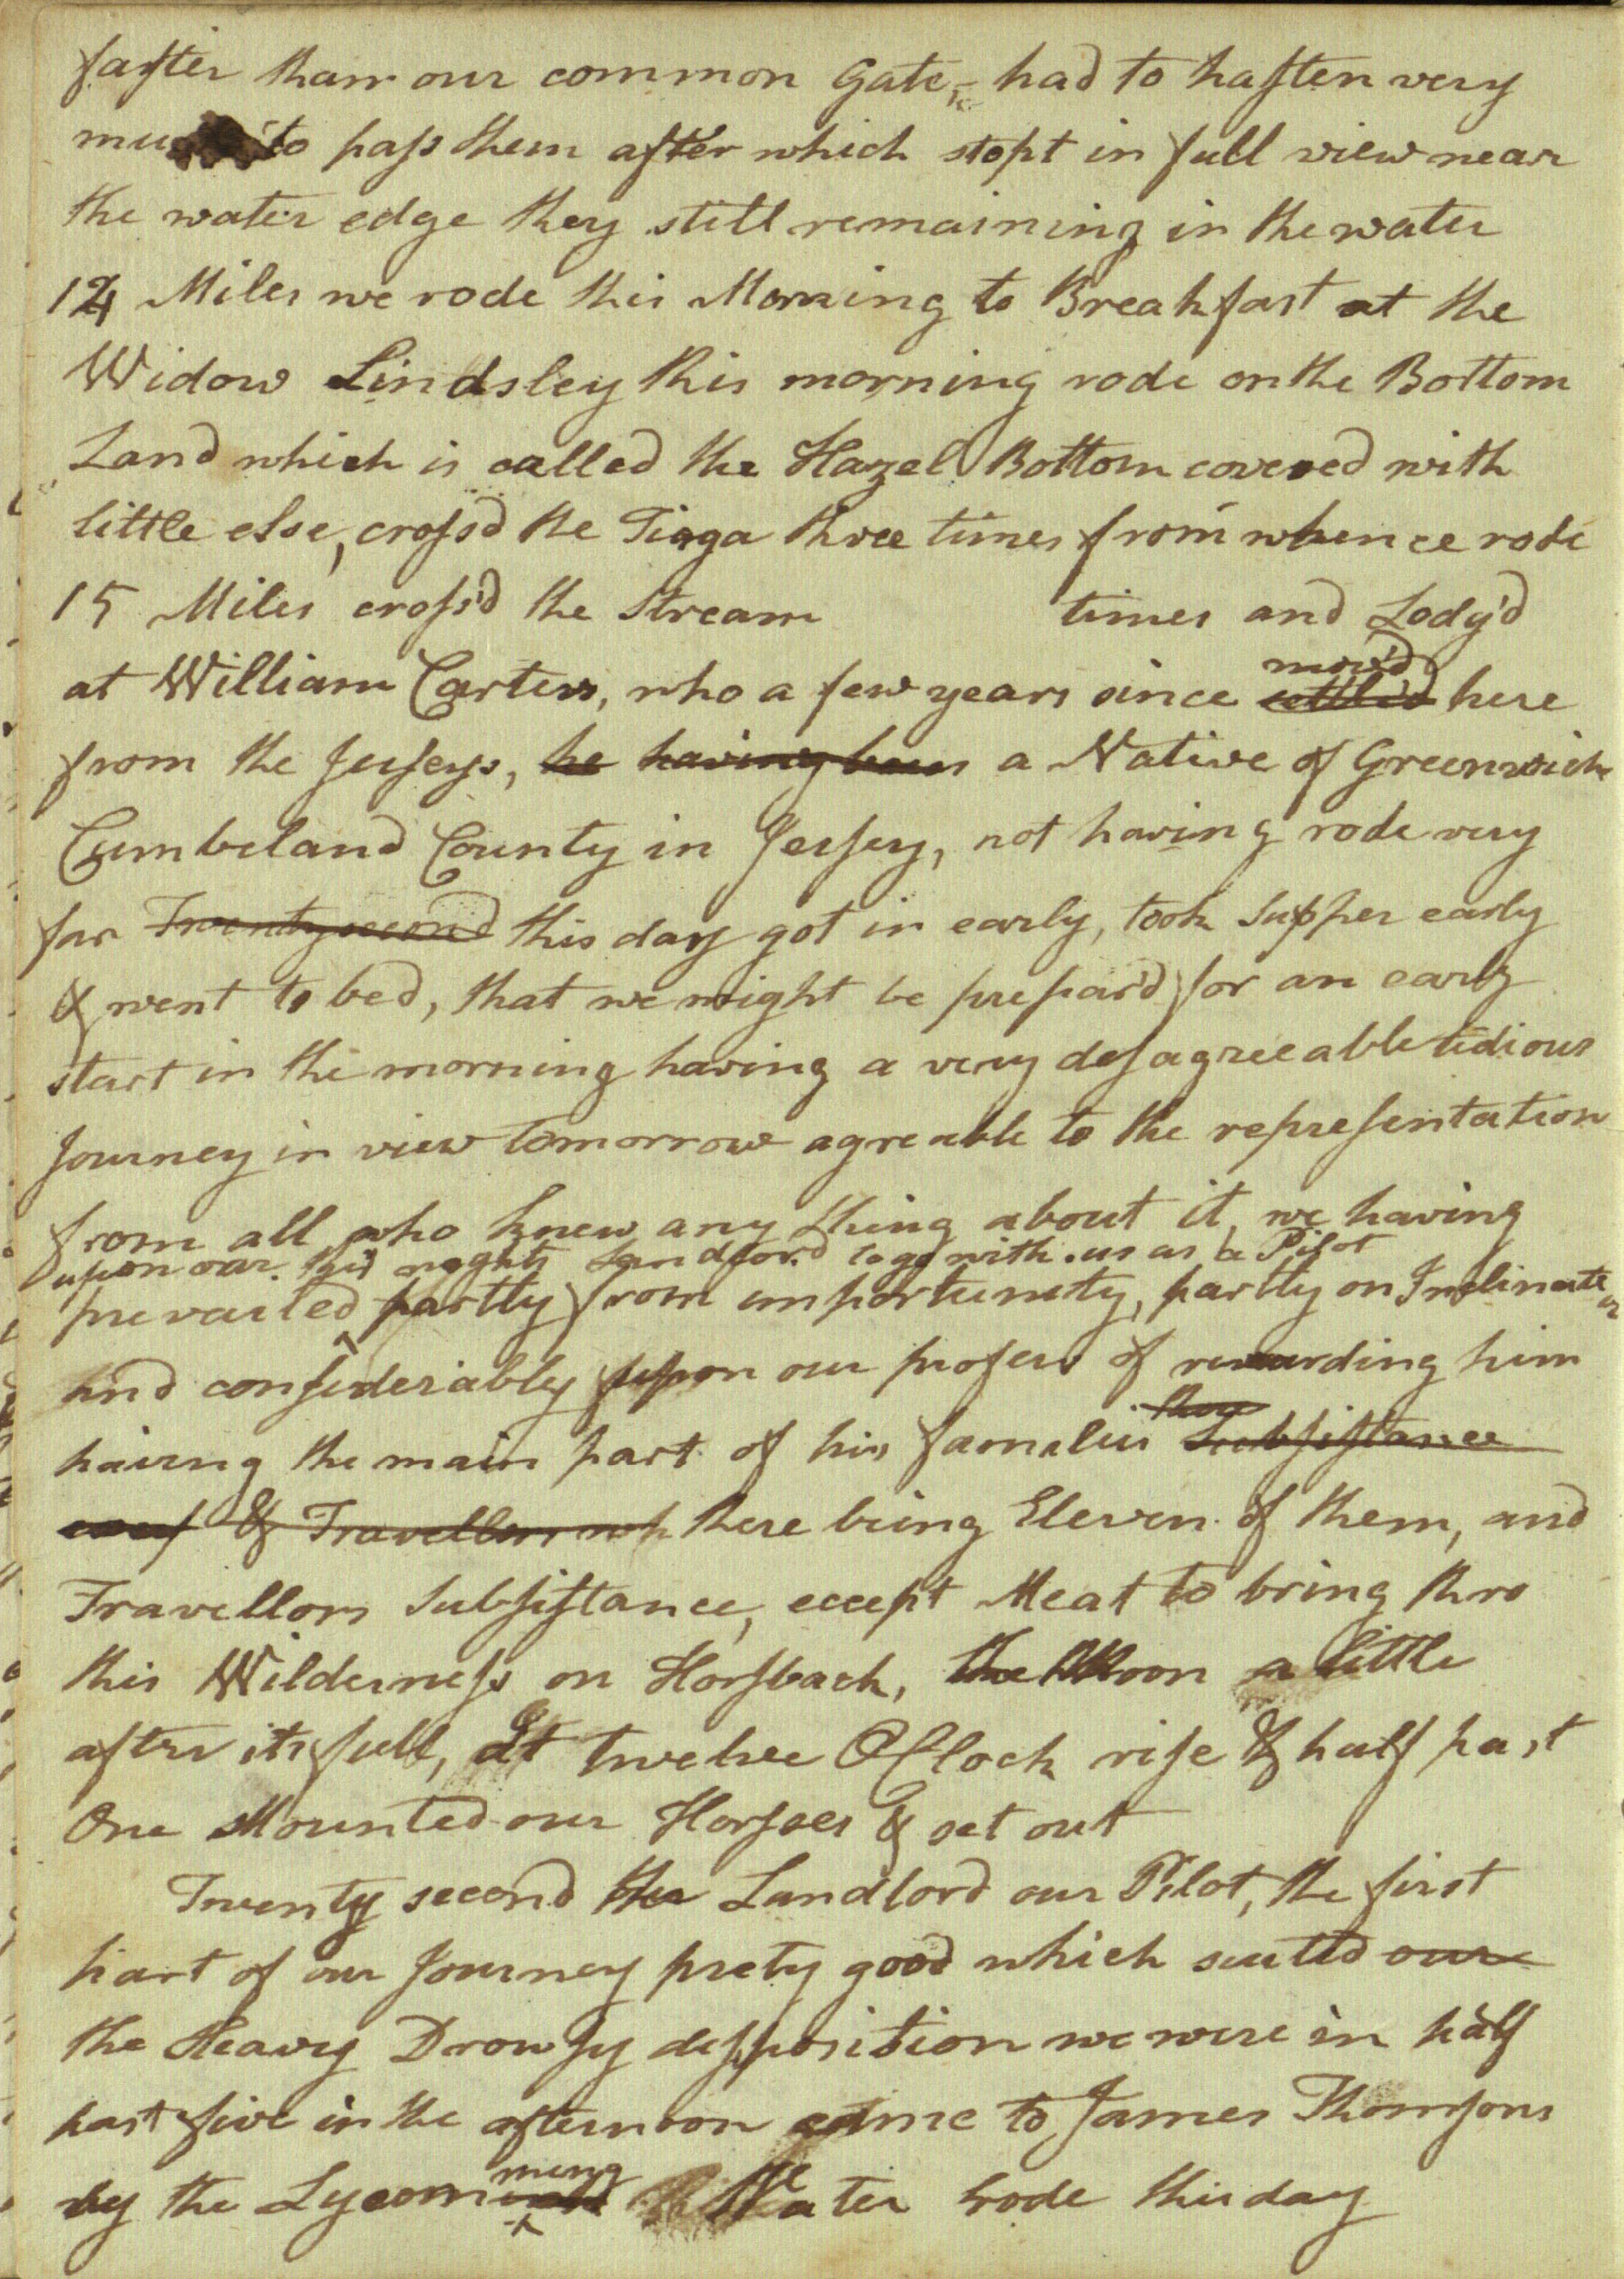 faster than our common Gate, had to hasten very
much to pass them after which stopt in full view near
the water edge they still remaining in the water
14 Miles we rode this Morning to Breakfast at the
Widow Lindsley this morning rode on the Bottom
Land which is called the Hazel Bottom covered with
little else, cross'd the Tioga three times from whence rode
15 Miles cross'd the Stream times and Lody'd
mov'd
at William Carters, who a few years since settled here
from the Jerseys, he having been a Native of Greenwich
Cumbeland County in Jersey, not having rode very
far Twenty second this day got in early, took Supper early
& went to bed, that we might be prepair'd for an early
start in the morning having a very desagreeable tedious
Journey in view tomorrow agreable to the representation
from all who knew any thing about it, we having
upon our this nights Landlord to go with us as a Pilot
prevailed partly from importunity, partly on Inclination
and considerably upon our profers of rewarding him
they
haveing the main part of his families Subsistance
& Travellers wh there being Eleven of them, and
Travellors Subsistance, ecept Meat to bring thro
this Wilderness on Horsback, the Moon a little
after its full, At twelve OClock rise & half past
One Mounted our Horses & set out
Twenty second the Landlord our Pilot, the first
part of our Journey prety good which suited our
the Heavy Drowsy desposition we were in half
past five in the afternoon came to James Thomsons
ming
by the Lycom Water rode this day